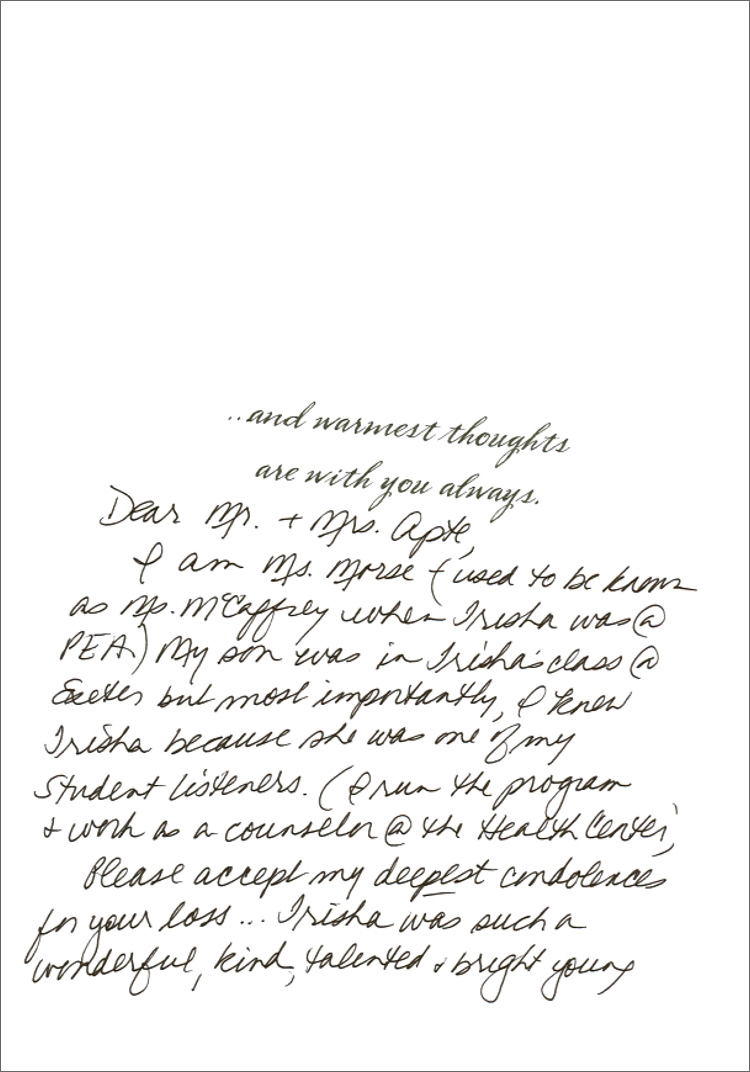 ..and warmest thoughts
are with you always.
Dear Mr. + Mrs. Apte,
I am Ms. Morse (used to be known
as Ms. McCaffrey when Trisha was @
PEA.) My son was in Trisha's class @
Exeter but most importantly, I knew
Trisha because she was one of my
Student listeners. (I run the program
+ work as a counselor @ the Health Center)
Please accept my deepest condolences
for your loss... Trisha was such a
wonderful, kind, talented + bright young